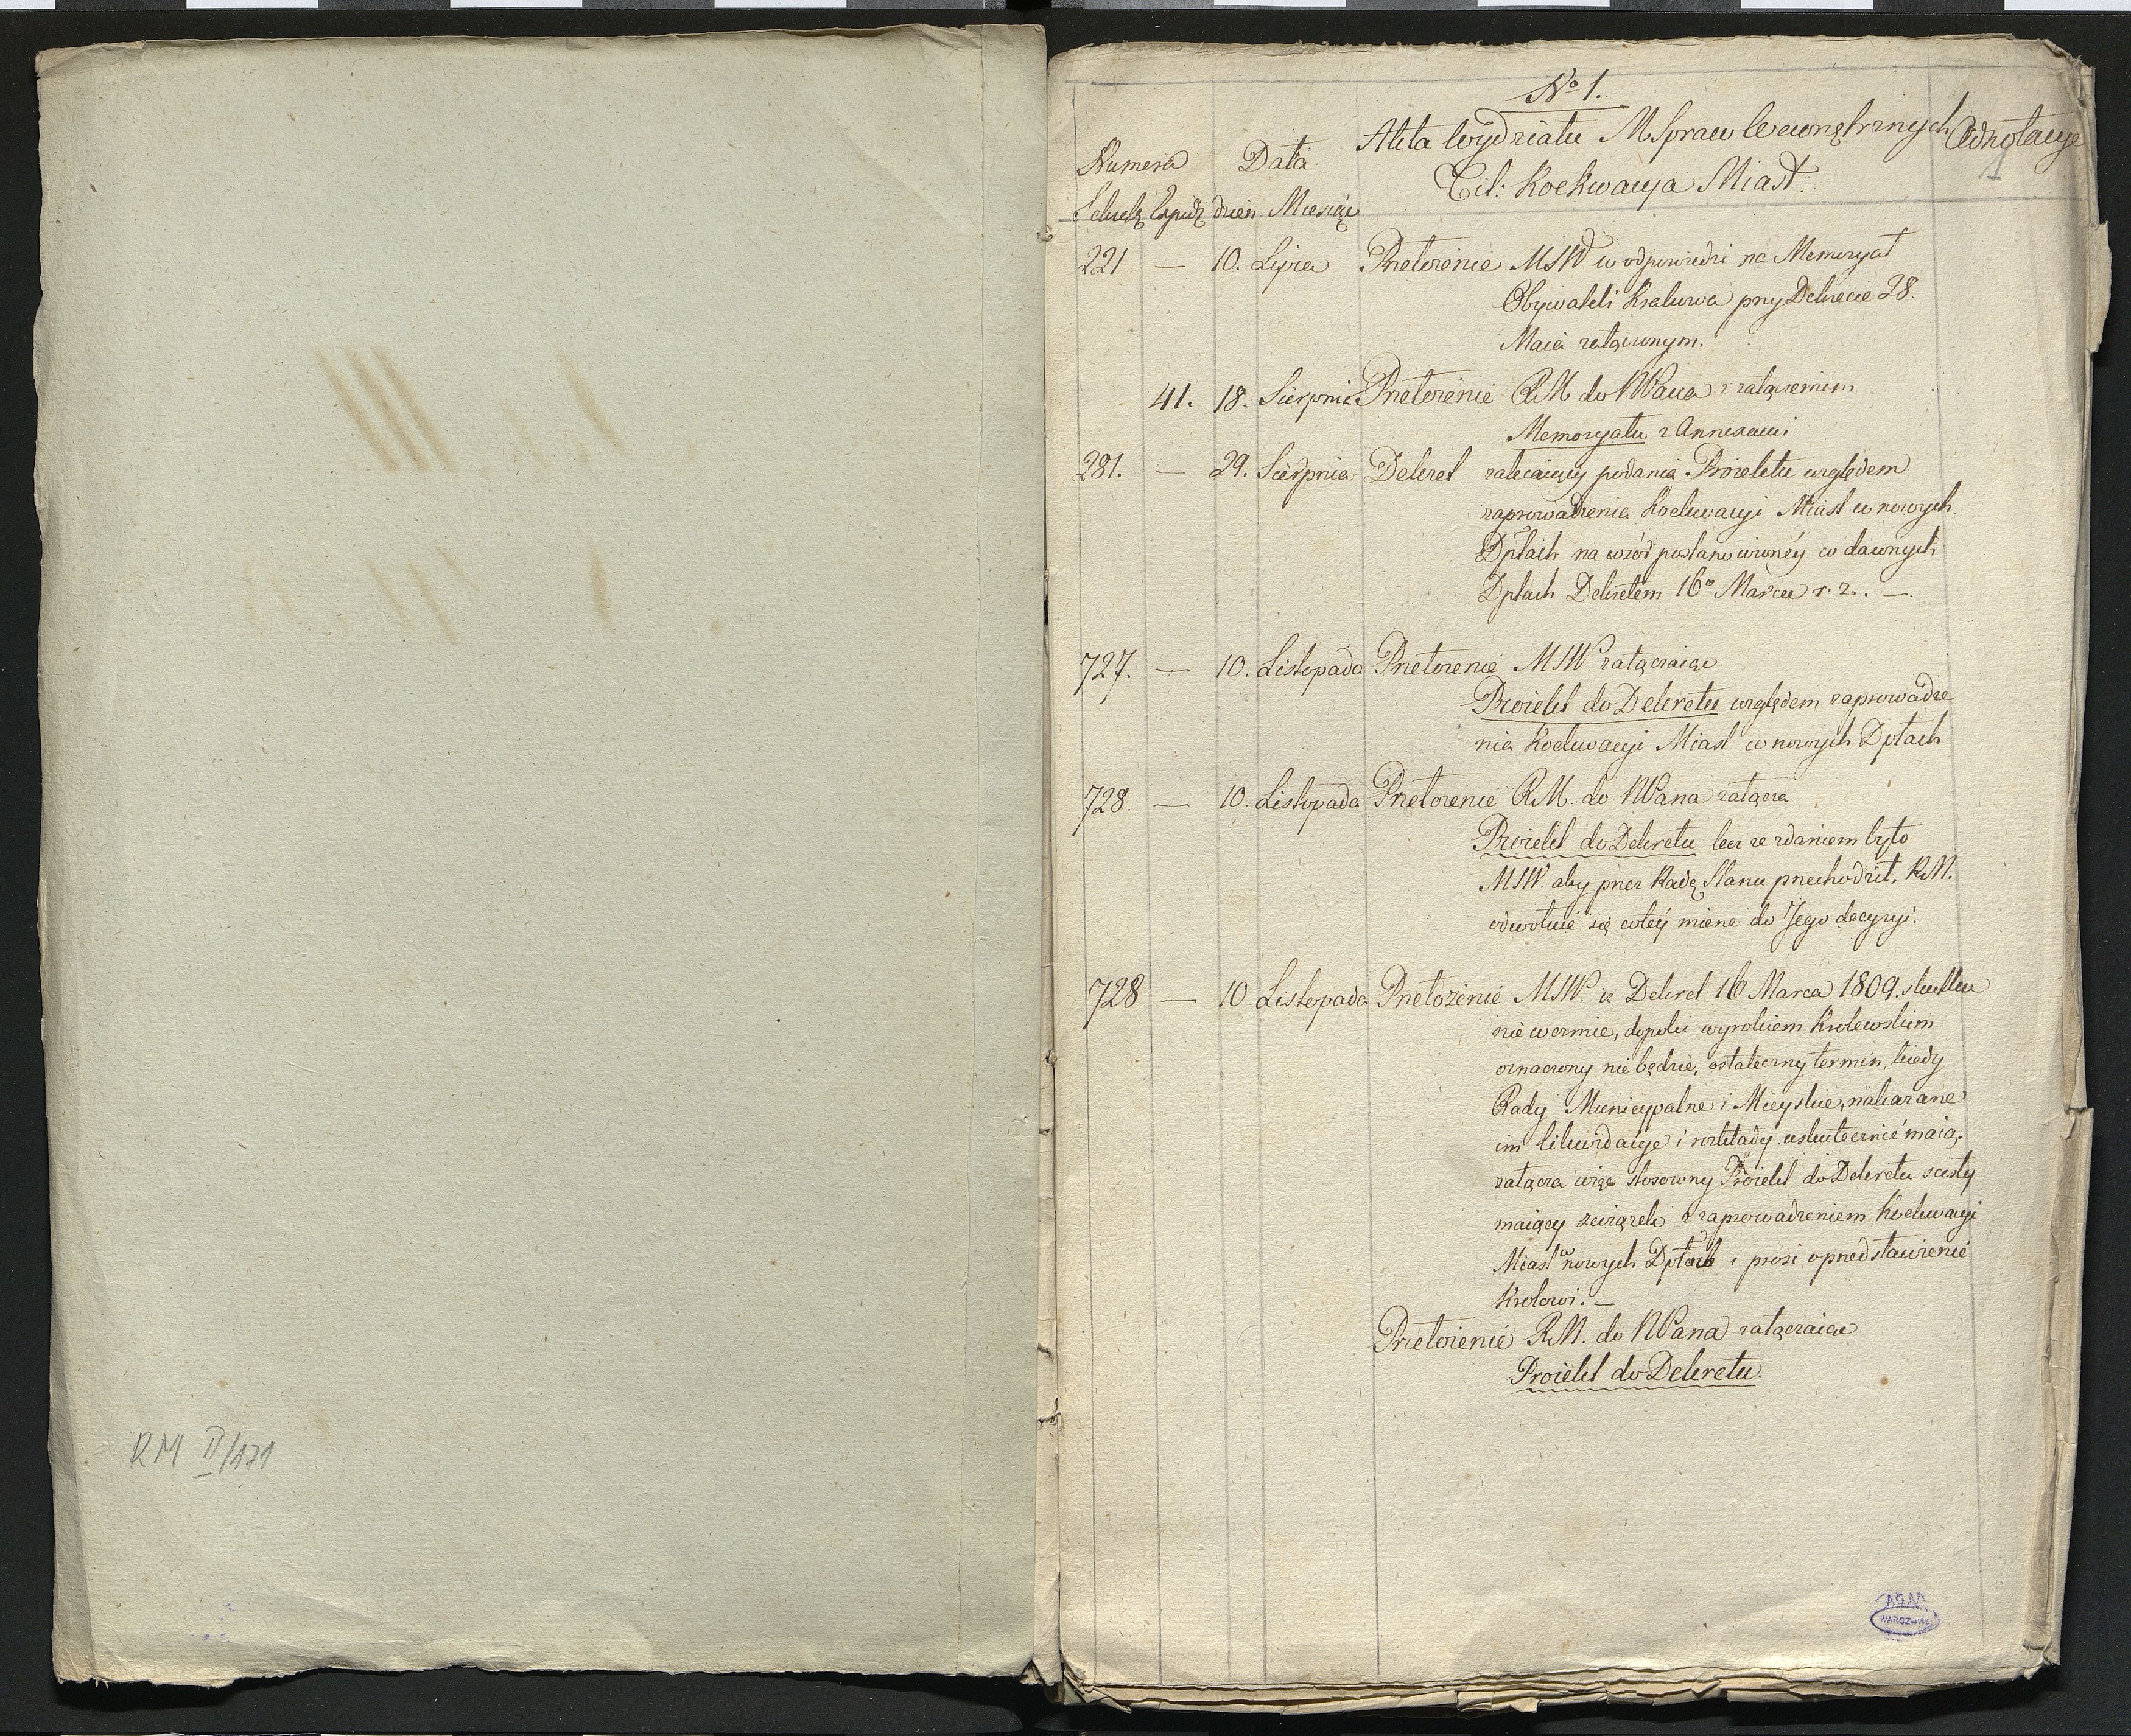 RM II/171
No 1.
Akta Wydziału M Spraw Wewnętrznych
Adnotacye
1
Numera Data
Tit: Koekwacya Miast.
Expedz dzień Miesiąc
221 — 10. Lipca Przełożenie MSW w odpowiedzi na Memoryał
Obywateli Krakowa przy Dekrecie 28.
Maia załączonym.
41. 18. Sierpnia Przełożenie RM do NPana z załączeniem
Memoryału z Annexami
281. — 29. Sierpnia Dekret zalecaiący podania Proiektu względem
zaprowadzenia Koekwacyi Miast w nowych
Dptach na wzór postanowionéy w dawnych
Dptach Dekretem 16o Marca r. z. —
727. — 10. Listopada Przełożenie MSW. załączaiąc
Proiekt do Dekretu względem zaprowadze
nia Koekwacyi Miast w nowych Dptach
728. — 10. Listopada Przełożenie RM. do NPana załącza
Proiekt do Dekretu lecz ze zdaniem było
MSW. aby przez Radę Stanu przechodził, RM.
odwołuie się w téy mierze do Jego decyzyi.
728 — 10. Listopada Przełożenie MSW. iż Dekret 16 Marca 1809. skutku
nie weźmie, dopoki wyrokiem Krolewskim
oznaczony nie będzie, ostateczny termin, kiedy
Rady Municypalne i Mieyskie, nakazane
im likwidacye i rozkłady uskutecznić maią,
załącza więc stosowny Proiekt do Dekretu scisły
maiący związek z zaprowadzeniem Koekwacyi
Miast w nowych Dptach i prosi o przedstawienie
Krolowi. —
Przełożenie RM. do NPana załączaiąc
Proiekt do Dekretu.
AGAD
WARSZAWA